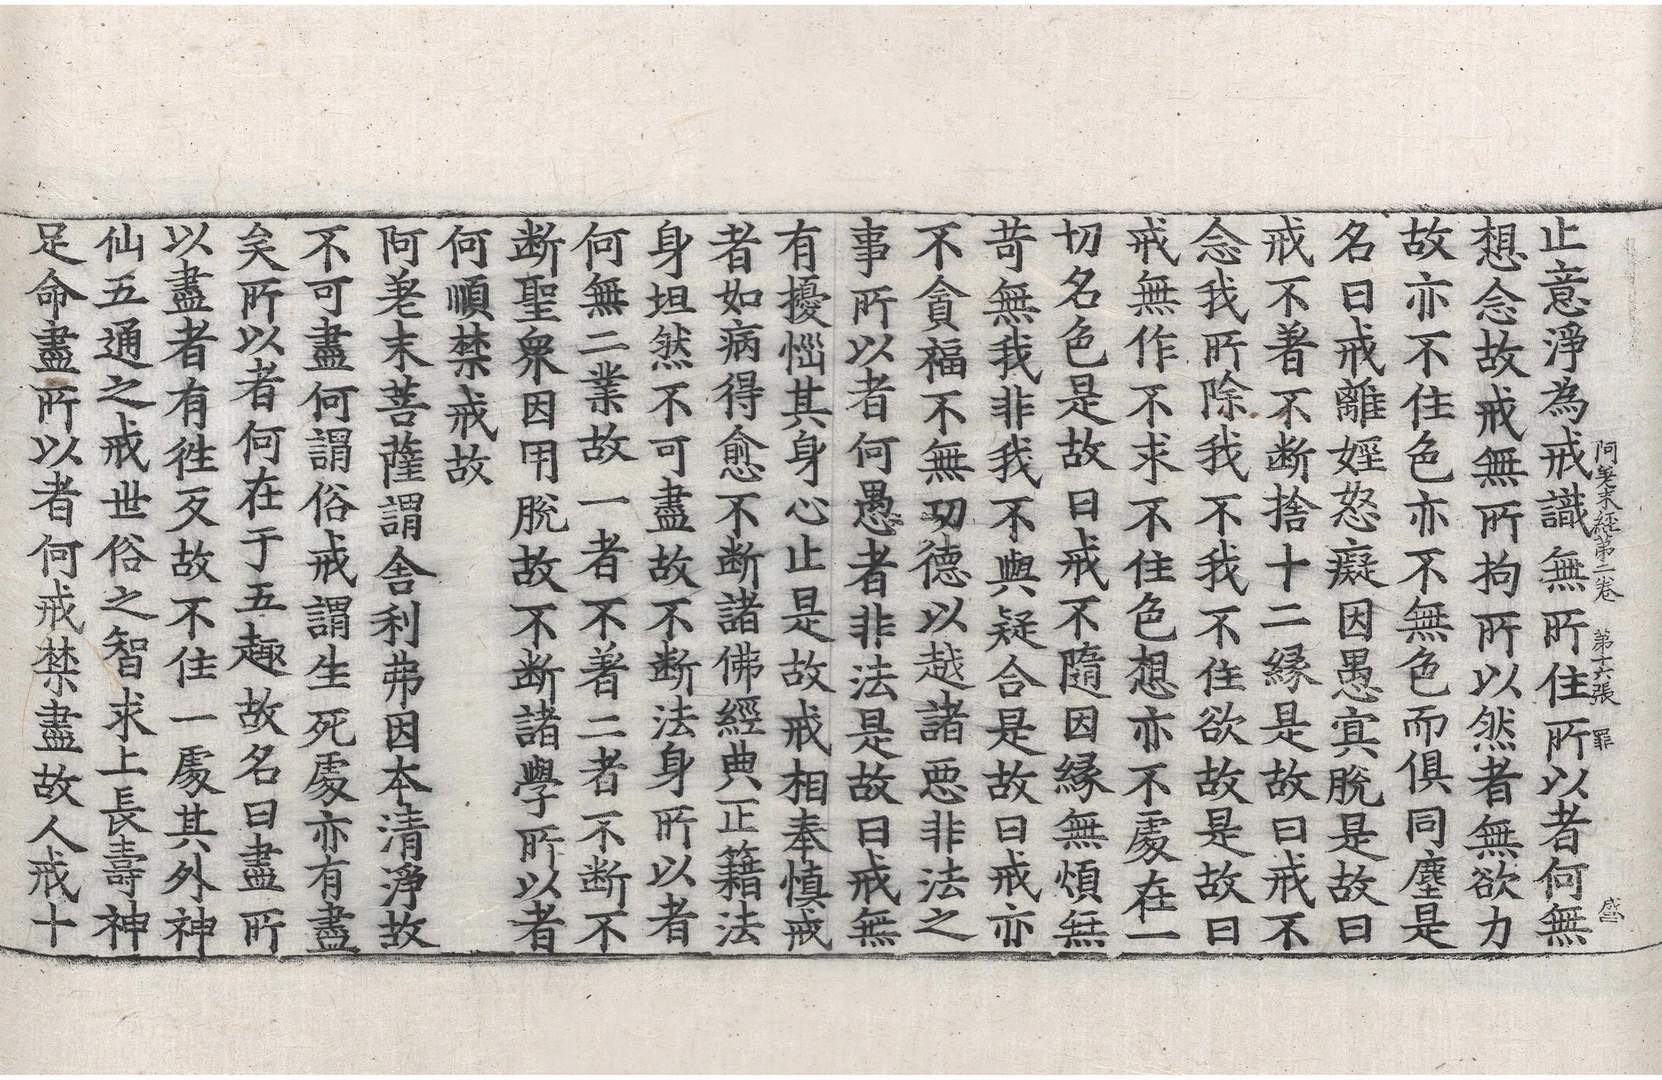 阿差末經第二卷　第十六張　罪
止意淨為戒識無所住所以者何無
想念故戒無所拘所以然者無欲力
故亦不住色亦不無色而俱同塵是
名曰戒離婬怒癡因愚冥脫是故曰
戒不著不断捨十二緣是故曰戒不
念我所除我不我不住欲故是故曰
戒無作不求不住色想亦不處在一
切名色是故曰戒不隨因緣無煩無
苛無我非我不與疑合是故曰戒亦
不貪福不無功德以越諸惡非法之
事所以者何愚者非法是故曰戒無
有擾惱其身心止是故戒相奉慎戒
者如病得愈不断諸佛經典正籍法
身坦然不可盡故不断法身所以者
何無二業故一者不著二者不断不
断聖衆因用脫故不断諸學所以者
何順禁戒故
阿差末菩薩謂舍利弗因本清淨故
不可盡何謂俗戒謂生死處亦有盡
矣所以者何在于五趣故名曰盡所
以盡者有徃反故不住一處其外神
仙五通之戒世俗之智求上長壽神
足命盡所以者何戒禁盡故人戒十